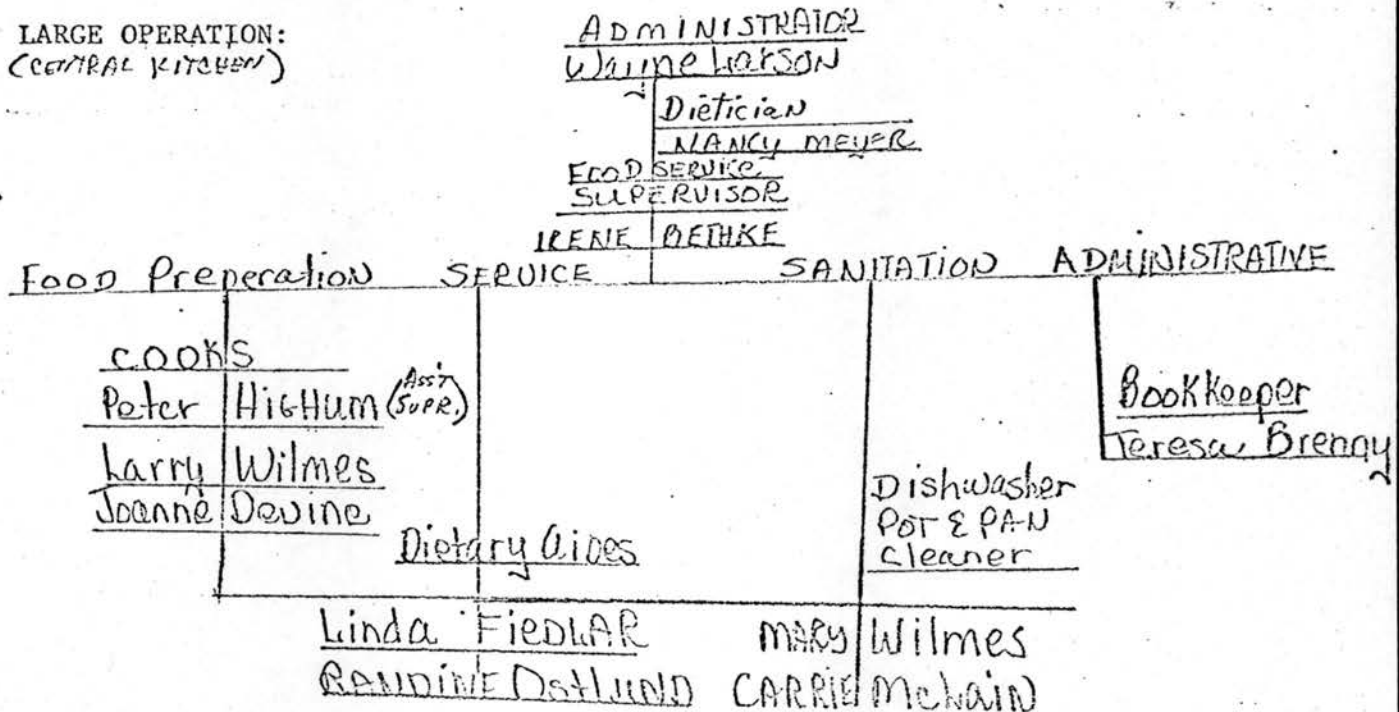 LARGE OPERATION:
(CENTRAL KITCHEN)
ADMINISTRATOR
Wayne Larson
Dietician
NANCY MEYER
FOOD SERVICE
SUPERVISOR
IRENE BETHKE
FOOD Preperation SERVICE SANITATION ADMINISTRATIVE
COOKS
Peter HIGHum (Ass't SUPR.)
Larry Wilmes
Joanne Devine
Bookkeeper
Teresa Brenny
Dietary Aides
Dishwasher
POT & PAN
Cleaner
Linda FIEDLAR MARY Wilmes
RANDINE OstLUND CARRIE McLain